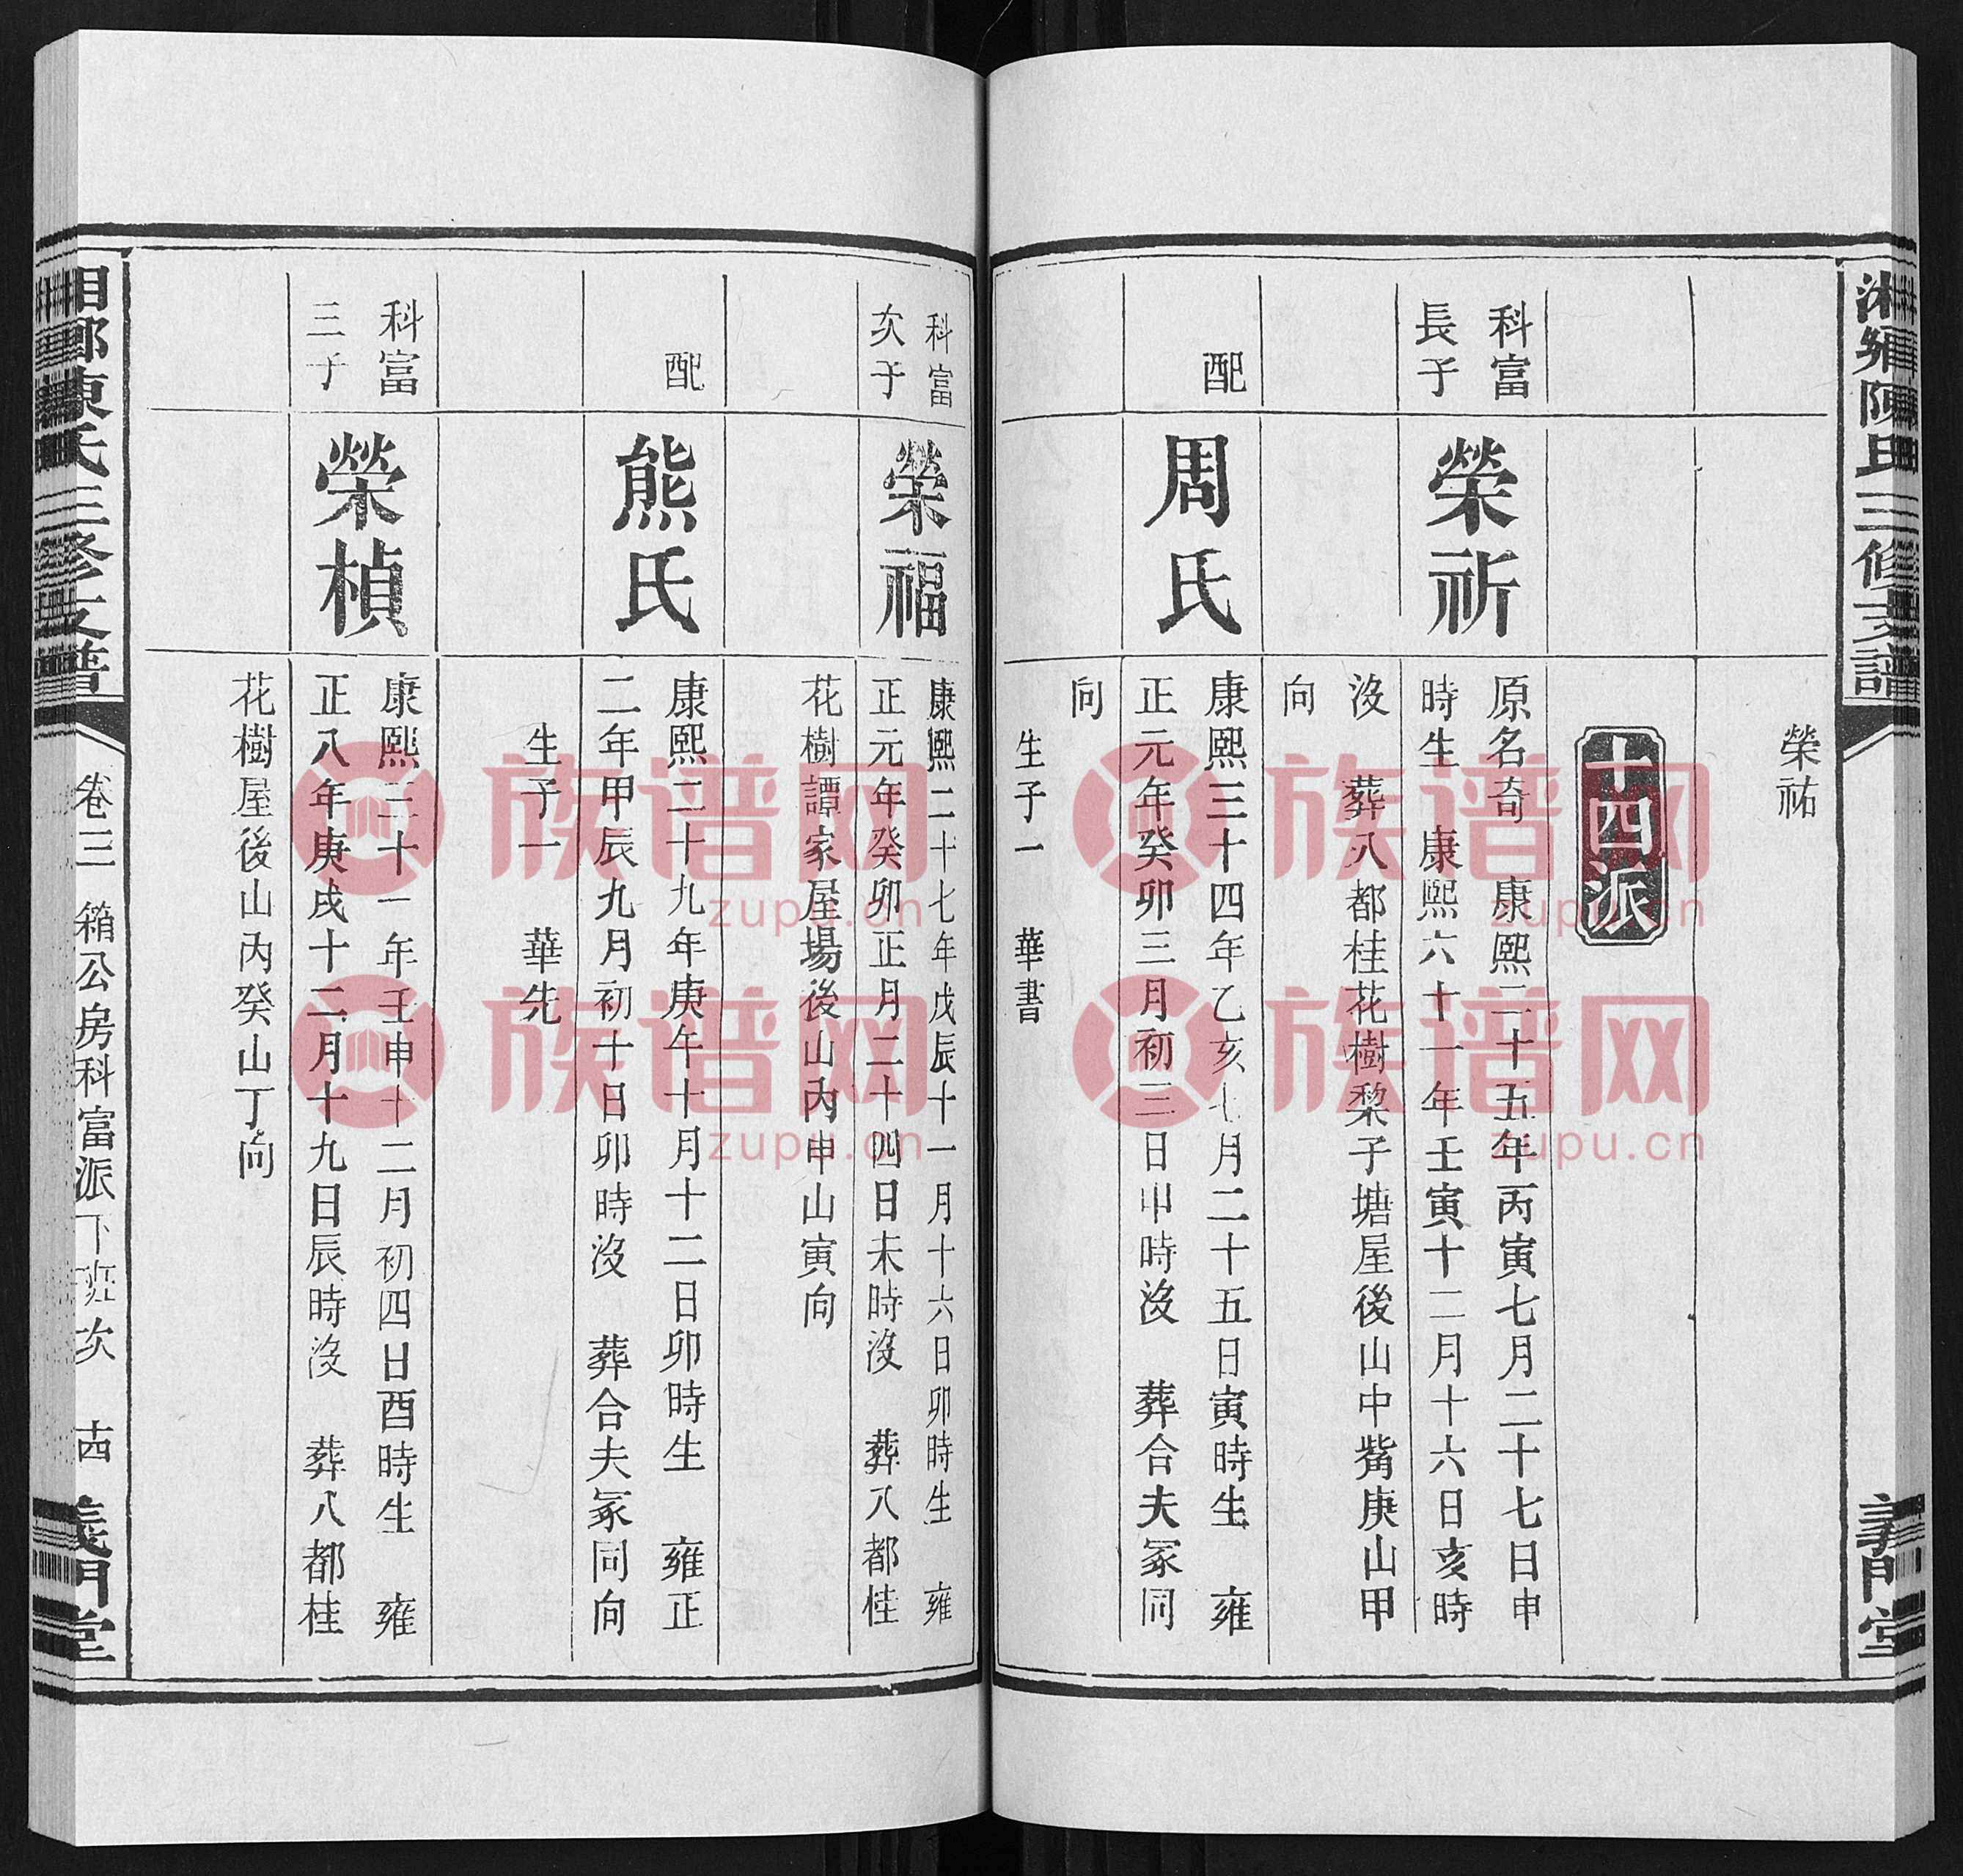 湘鄉陳氏三修支譜
義門堂
榮祐
十四派
科富
長子
榮祈
原名奇 康熙二十五年丙寅七月二十七日申
時生 康熙六十一年壬寅十二月十六日亥時
沒 葬八都桂花樹棃子塘屋後山中觜庚山甲
向
配
周氏
康熙三十四年乙亥七月二十五日寅時生 雍
正元年癸卯三月初三日申時沒 葬合夫冢同
向
生子一 華書
科富
次子
榮福
康熙二十七年戊辰十一月十六日卯時生 雍
正元年癸卯正月二十四日未時沒 葬八都桂
花樹譚家屋場後山內申山寅向
配
熊氏
康熙二十九年庚午十月十二日卯時生 雍正
二年甲辰九月初十日卯時沒 葬合夫冢同向
生子一 華先
科富
三子
榮楨
康熙三十一年壬申十二月初四日酉時生 雍
正八年庚戌十二月十九日辰時沒 葬八都桂
花樹屋後山內癸山丁向
湘鄉陳氏三修支譜
卷三 箱公房科富派下班次 十四
義門堂
族谱网
zupu.cn
族谱网
zupu.cn
族谱网
zupu.cn
族谱网
zupu.cn